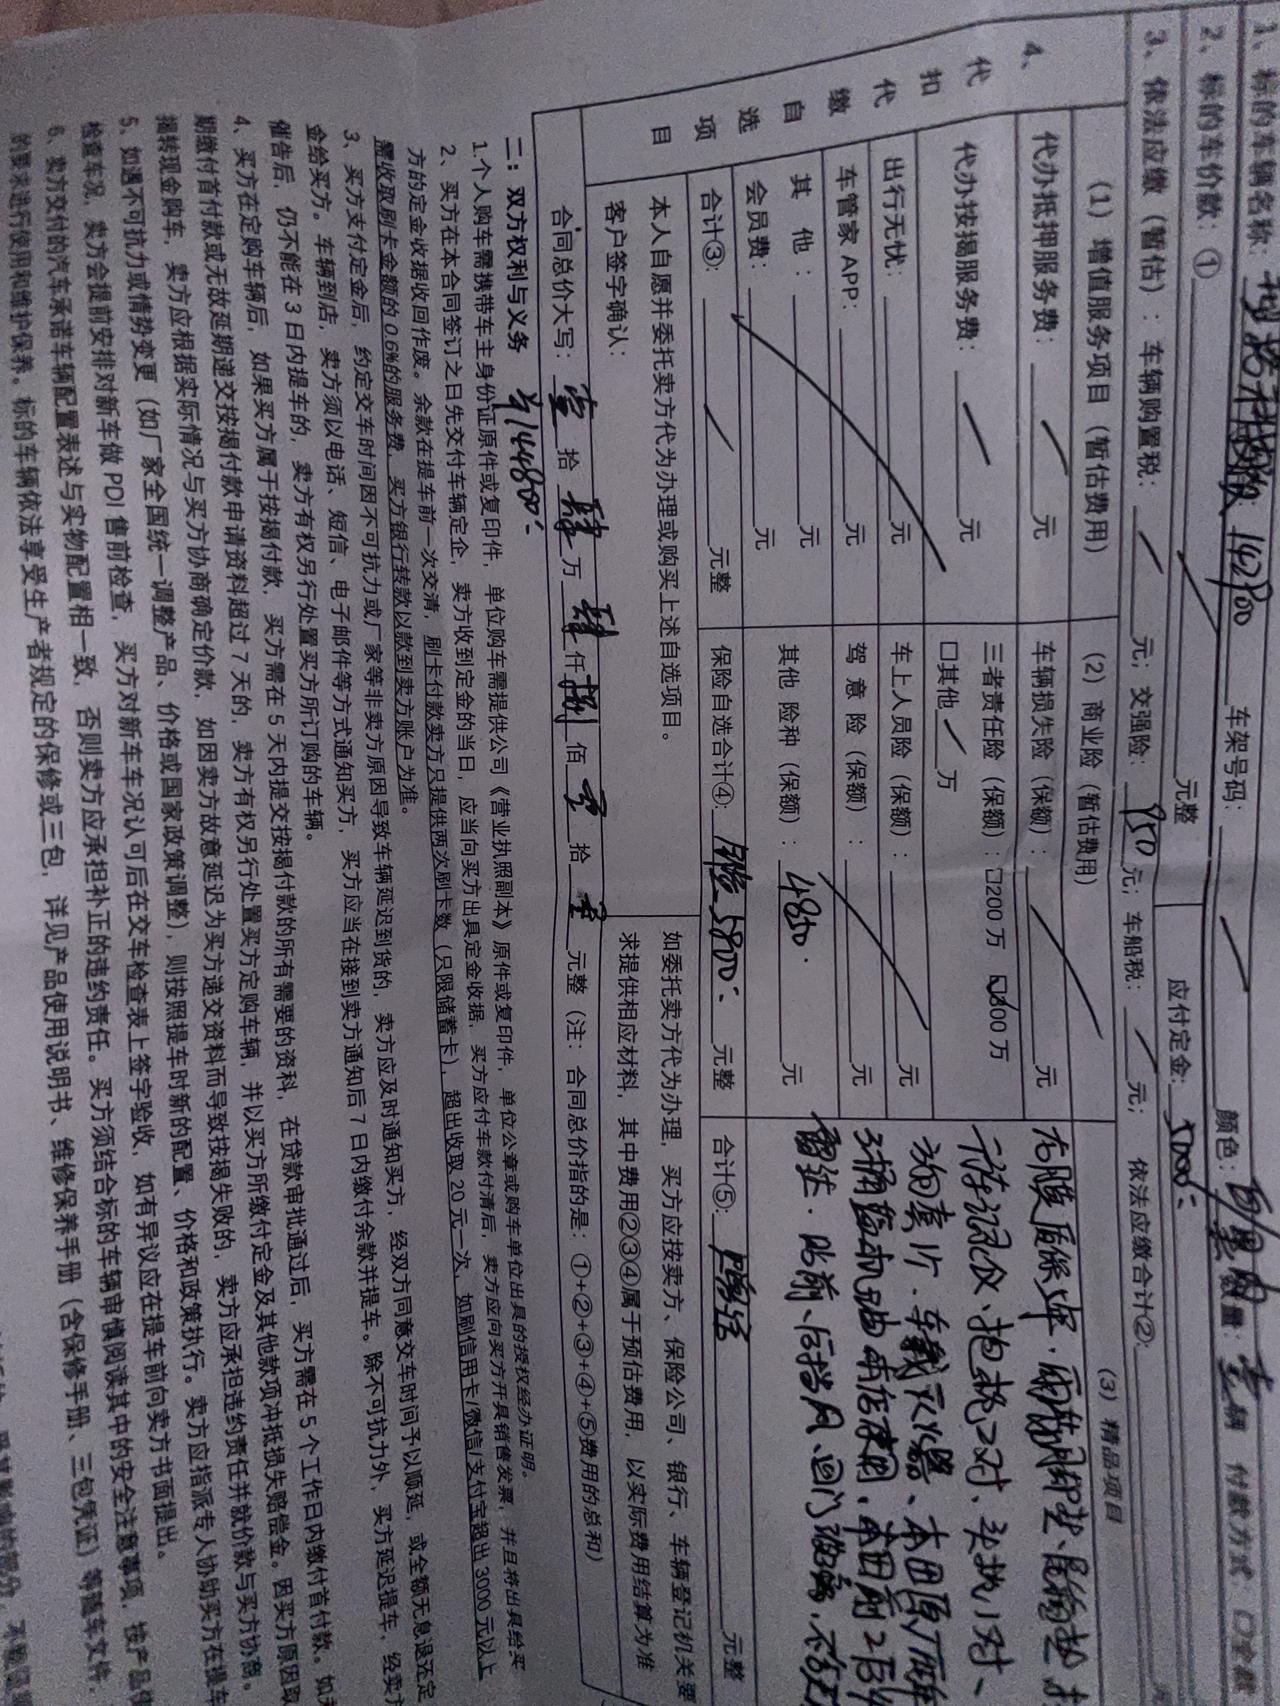 1、标的车辆名称: 142800 车架号码: 颜色: 数量: 壹辆 付款方式: □全款
2、标的车价款: ① 元整 应付定金: 5000.-
3、依法应缴(暂估): 车辆购置税: 元; 交强险: 950 元; 车船税: 元; 依法应缴合计②:
4、代扣代缴自选项目
(1) 增值服务项目(暂估费用) (2) 商业险(暂估费用) (3) 精品项目
代办抵押服务费: 元 车辆损失险(保额): 元
代办按揭服务费: 元 三者责任险(保额): □200万 ☑300万
□其他 万
出行无忧: 元 车上人员险(保额): 元
车管家 APP: 元 驾 意 险(保额): 元
其 他: 元 其他 险种(保额): 4850. 元
会员费: 元
合计③: 元整 保险自选合计④: 5800.- 元整 合计⑤: 元整
行车记录仪、抱枕2对、头枕1对、
车载灭火器、本田原厂
雷达. 贴前、后挡风、四门玻璃、
本人自愿并委托卖方代为办理或购买上述自选项目。
客户签字确认:
如委托卖方代为办理, 买方应按卖方、保险公司、银行、车辆登记机关要
求提供相应材料, 其中费用②③④属于预估费用, 以实际费用结算为准
合同总价大写: 壹 拾 肆 万 肆 仟 捌 佰 零 拾 零 元整 (注: 合同总价指的是: ①+②+③+④+⑤费用的总和)
¥144800.-
二: 双方权利与义务
1.个人购车需携带车主身份证原件或复印件, 单位购车需提供公司《营业执照副本》原件或复印件, 单位公章或购车单位出具的授权经办证明。
2、买方在本合同签订之日先交付车辆定金, 卖方收到定金的当日, 应当向买方出具定金收据, 买方应付车款付清后, 卖方应向买方开具销售发票, 并且将出具给买
方的定金收据收回作废。余款在提车前一次交清, 刷卡付款卖方只提供两次刷卡数(只限储蓄卡), 超出收取 20 元一次, 如刷信用卡/微信/支付宝超出 3000 元以上
需收取刷卡金额的 0.6%的服务费, 买方银行转款以款到卖方账户为准。
3、买方支付定金后, 约定交车时间因不可抗力或厂家等非卖方原因导致车辆延迟到货的, 卖方应及时通知买方, 经双方同意交车时间予以顺延, 或全额无息退还定
金给买方。车辆到店, 卖方须以电话、短信、电子邮件等方式通知买方, 买方应当在接到卖方通知后 7 日内缴付余款并提车。除不可抗力外, 买方延迟提车, 经卖方
催告后, 仍不能在 3 日内提车的, 卖方有权另行处置买方所订购的车辆。
4、买方在定购车辆后, 如果买方属于按揭付款, 买方需在 5 天内提交按揭付款的所有需要的资料, 在贷款审批通过后, 买方需在 5 个工作日内缴付首付款。如
期缴付首付款或无故延期递交按揭付款申请资料超过 7 天的, 卖方有权另行处置买方定购车辆, 并以买方所缴付定金及其他款项冲抵损失赔偿金。因买方原因取
揭转现金购车, 卖方应根据实际情况与买方协商确定价款, 如因卖方故意延迟为买方递交资料而导致按揭失败的, 卖方应承担违约责任并就价款与买方协商。
5、如遇不可抗力或情势变更(如厂家全国统一调整产品、价格或国家政策调整), 则按照提车时新的配置、价格和政策执行。卖方应指派专人协助买方在提车
检查车况, 卖方会提前安排对新车做 PDI 售前检查, 买方对新车车况认可后在交车检查表上签字验收, 如有异议应在提车前向卖方书面提出。
6、卖方交付的汽车承诺车辆配置表述与实物配置相一致, 否则卖方应承担补正的违约责任。买方须结合标的车辆审慎阅读其中的安全注意事项, 按产品使
的要求进行使用和维护保养。标的车辆依法享受生产者规定的保修或三包, 详见产品使用说明书、维修保养手册(含保修手册、三包凭证)等随车文件,